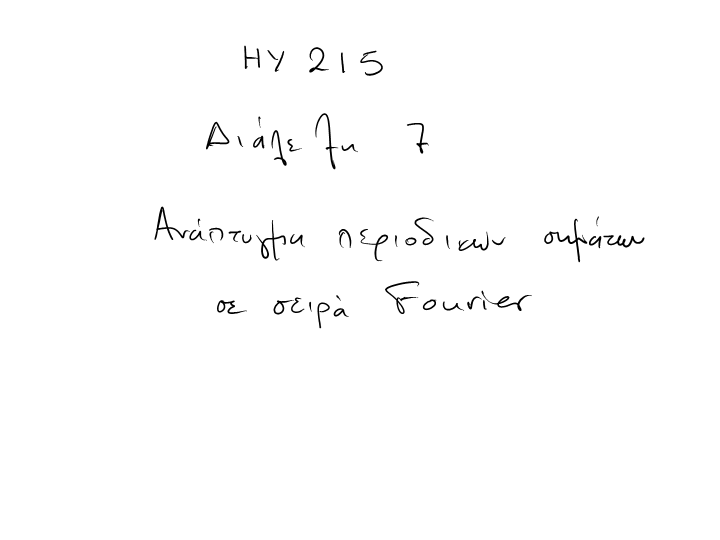 ΗΥ 215
Διάλεξη 7
Ανάπτυγμα περιοδικών σημάτων
σε σειρά Fourier